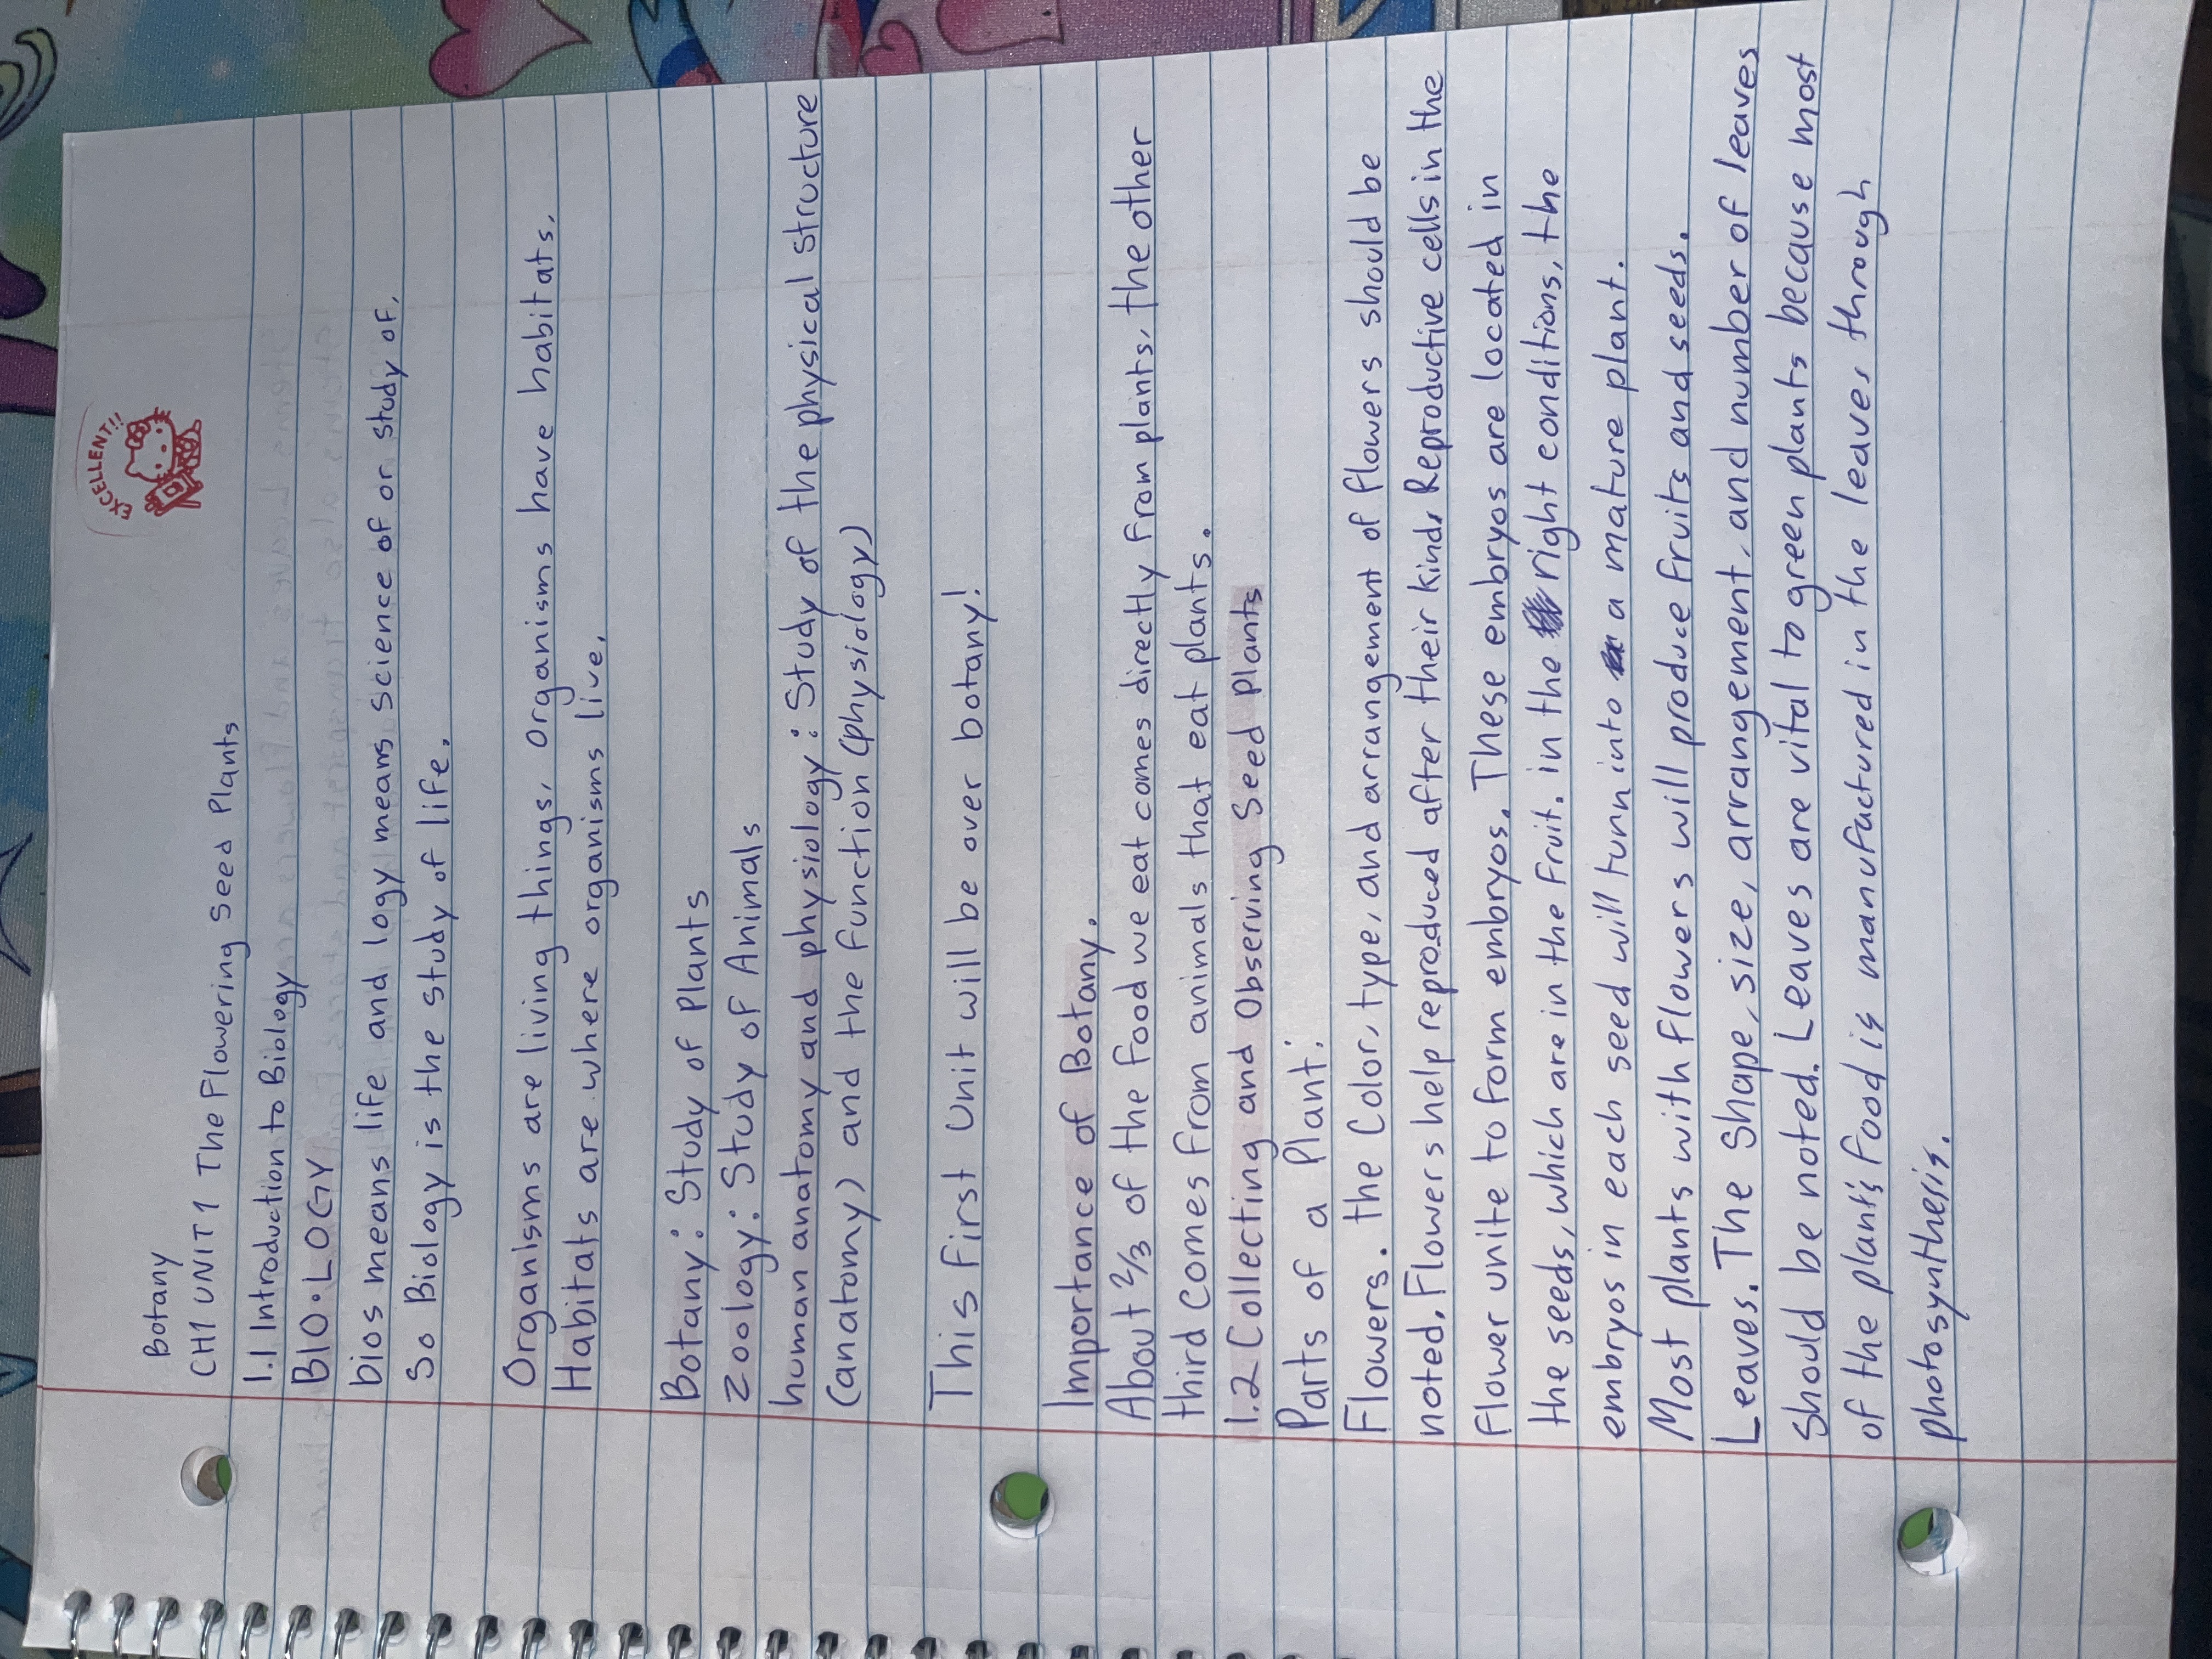 EXCELLENT!!
Botany
CH1 UNIT 1 The Flowering Seed Plants
1.1 Introduction to Biology
BIO•LOGY
bios means life and logy means science of or study of.
So Biology is the study of life.
Organisms are living things, organisms have habitats.
Habitats are where organisms live.
Botany: Study of Plants
Zoology: Study of Animals
human anatomy and physiology: Study of the physical structure
(anatomy) and the function (physiology)
This First Unit will be over botany!
Importance of Botany.
About 2/3 of the food we eat comes directly from plants, the other
third comes from animals that eat plants.
1.2 Collecting and Observing Seed Plants
Parts of a Plant:
Flowers. the Color, type, and arrangement of flowers should be
noted. Flowers help reproduced after their kind. Reproductive cells in the
flower unite to form embryos. These embryos are located in
the seeds, which are in the fruit. in the right conditions, the
embryos in each seed will turn into a mature plant.
Most plants with flowers will produce fruits and seeds.
Leaves. The Shape, size, arrangement, and number of leaves
should be noted. Leaves are vital to green plants because most
of the plant's food is manufactured in the leaves through
photosynthesis.